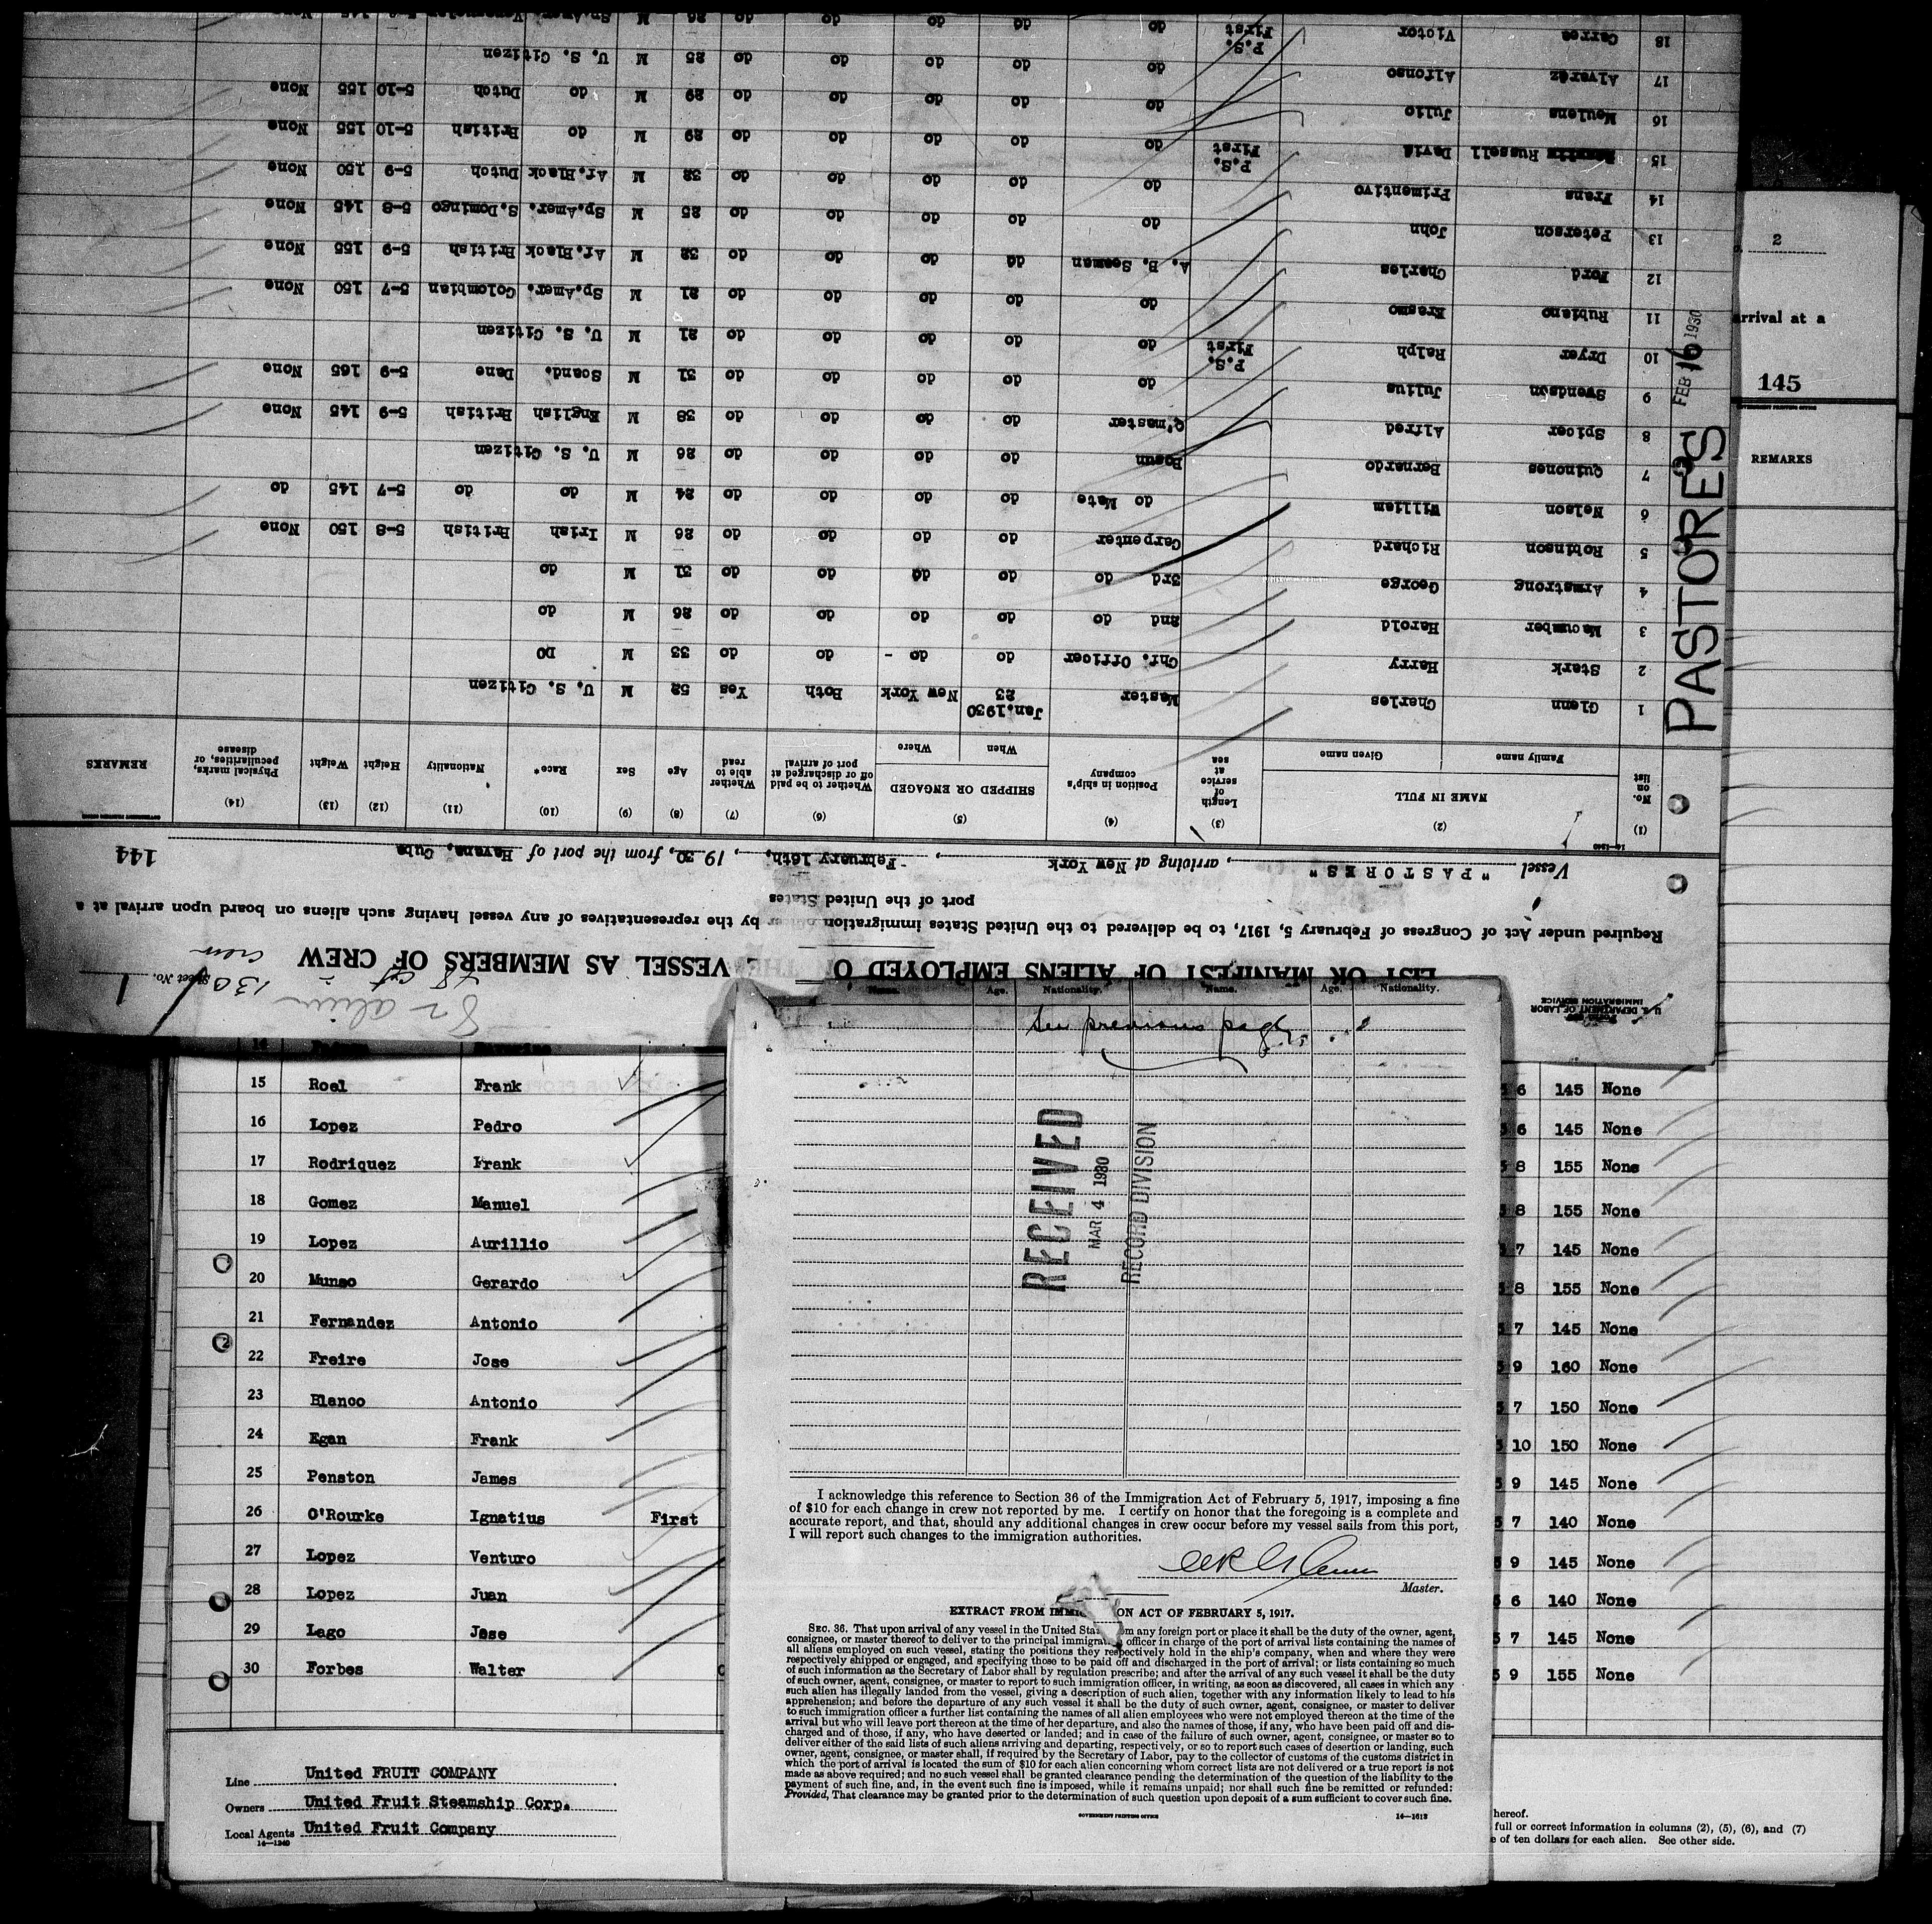 U. S. DEPARTMENT OF LABOR
IMMIGRATION SERVICE
82 alien
48 cit
130 crew
Sheet No. 1
LIST OR MANIFEST OF ALIENS EMPLOYED O VESSEL AS MEMBERS OF CREW
Required under Act of Congress of February 5, 1917, to be delivered to the United States immigration officer by the representatives of any vessel having such aliens on board upon arrival at a
port of the United States
Vessel "PASTORES", arriving at New York, February 16th, 1930, from the port of Havana, Cuba 144
14—1240
GOVERNMENT PRINTING OFFICE
(1) (2) (3) (4) (5) (6) (7) (8) (9) (10) (11) (12) (13) (14)
No. on list NAME IN FULL Length of service at sea Position in ship's company SHIPPED OR ENGAGED Whether to be paid off or discharged at port of arrival Whether able to read Age Sex Race* Nationality Height Weight Physical marks, peculiarities, or disease REMARKS
Family name Given name When Where
1 Glenn Charles Master Jan.1930 23 New York Both Yes 52 M U. S. Citizen
2 Stark Harry Chf. Officer do do - do do 33 M DO
3 Macumber Harold 2nd do do do do do 26 M do
4 Armstrong George 3rd do do do do do 31 M do
5 Robinson Richard Carpenter do do do do 26 M Irish British 5-8 150 None
6 Nelson William do Mate do do do do 24 M do do 5-7 145 do
7 Quinones Bernardo Bosun do do do do 26 M U. S. Citizen
8 Spicer Alfred Q'master do do do do 38 M English British 5-9 145 None
9 Swendson Julius do do do do do 31 M Scand. Dane 5-9 165 None
10 Dryer Ralph P.S. First do do do do do 21 M U. S. Citizen
11 Rubiano Erasmo do do do do do 21 M Sp.Amer. Colombian 5-7 150 None
12 Ford Charles A. B. Seaman do do do do 32 M Af.Black British 5-9 155 None
13 Peterson John do do do do do 25 M Sp.Amer. S.Domingo 5-8 145 None
14 Frans Primentivo do do do do do 32 M Af.Black Dutch 5-9 150 None
15 Russell David P.S. First do do do do do 29 M do British 5-10 155 None
16 Meulens Julio do do do do do 29 M do Dutch 5-10 155 None
17 Alverez Alfonso do do do do do 25 M U. S. Citizen
18 Carres Victor P.S. First do do do do do 26 M Sp.Amer. Venezuelan 145 None
PASTORES
FEB 16 1930
2
arrival at a
145
GOVERNMENT PRINTING OFFICE
REMARKS
14
15 Roel Frank 5 6 145 None
16 Lopez Pedro 5 6 145 None
17 Rodriquez Frank 5 8 155 None
18 Gomez Manuel 5 8 155 None
19 Lopez Aurillio 5 7 145 None
20 Munso Gerardo 5 8 155 None
21 Fernandez Antonio 5 7 145 None
22 Freire Jose 5 9 160 None
23 Blanco Antonio 5 7 150 None
24 Egan Frank 5 10 150 None
25 Penston James 5 9 145 None
26 O'Rourke Ignatius First 5 7 140 None
27 Lopez Venturo 5 9 145 None
28 Lopez Juan 5 6 140 None
29 Lago Jose 5 7 145 None
30 Forbes Walter 5 9 155 None
Line United FRUIT COMPANY
Owners United Fruit Steamship Corp.
Local Agents United Fruit Company
14—1240
hereof.
full or correct information in columns (2), (5), (6), and (7)
e of ten dollars for each alien. See other side.
Name. Age. Nationality. Name. Age. Nationality.
See previous page
RECEIVED
MAR 4 1930
RECORD DIVISION
I acknowledge this reference to Section 36 of the Immigration Act of February 5, 1917, imposing a fine
of $10 for each change in crew not reported by me. I certify on honor that the foregoing is a complete and
accurate report, and that, should any additional changes in crew occur before my vessel sails from this port,
I will report such changes to the immigration authorities.
Master.
EXTRACT FROM IMMI ON ACT OF FEBRUARY 5, 1917.
SEC. 36. That upon arrival of any vessel in the United Stat om any foreign port or place it shall be the duty of the owner, agent,
consignee, or master thereof to deliver to the principal immigrat officer in charge of the port of arrival lists containing the names of
all aliens employed on such vessel, stating the positions they respectively hold in the ship's company, when and where they were
respectively shipped or engaged, and specifying those to be paid off and discharged in the port of arrival; or lists containing so much
of such information as the Secretary of Labor shall by regulation prescribe; and after the arrival of any such vessel it shall be the duty
of such owner, agent, consignee, or master to report to such immigration officer, in writing, as soon as discovered, all cases in which any
such alien has illegally landed from the vessel, giving a description of such alien, together with any information likely to lead to his
apprehension; and before the departure of any such vessel it shall be the duty of such owner, agent, consignee, or master to deliver
to such immigration officer a further list containing the names of all alien employees who were not employed thereon at the time of the
arrival but who will leave port thereon at the time of her departure, and also the names of those, if any, who have been paid off and dis-
charged and of those, if any, who have deserted or landed; and in case of the failure of such owner, agent, consignee, or master so to
deliver either of the said lists of such aliens arriving and departing, respectively, or so to report such cases of desertion or landing, such
owner, agent, consignee, or master shall, if required by the Secretary of Labor, pay to the collector of customs of the customs district in
which the port of arrival is located the sum of $10 for each alien concerning whom correct lists are not delivered or a true report is not
made as above required; and no such vessel shall be granted clearance pending the determination of the question of the liability to the
payment of such fine, and, in the event such fine is imposed, while it remains unpaid; nor shall such fine be remitted or refunded:
Provided, That clearance may be granted prior to the determination of such question upon deposit of a sum sufficient to cover such fine.
GOVERNMENT PRINTING OFFICE
14—1613